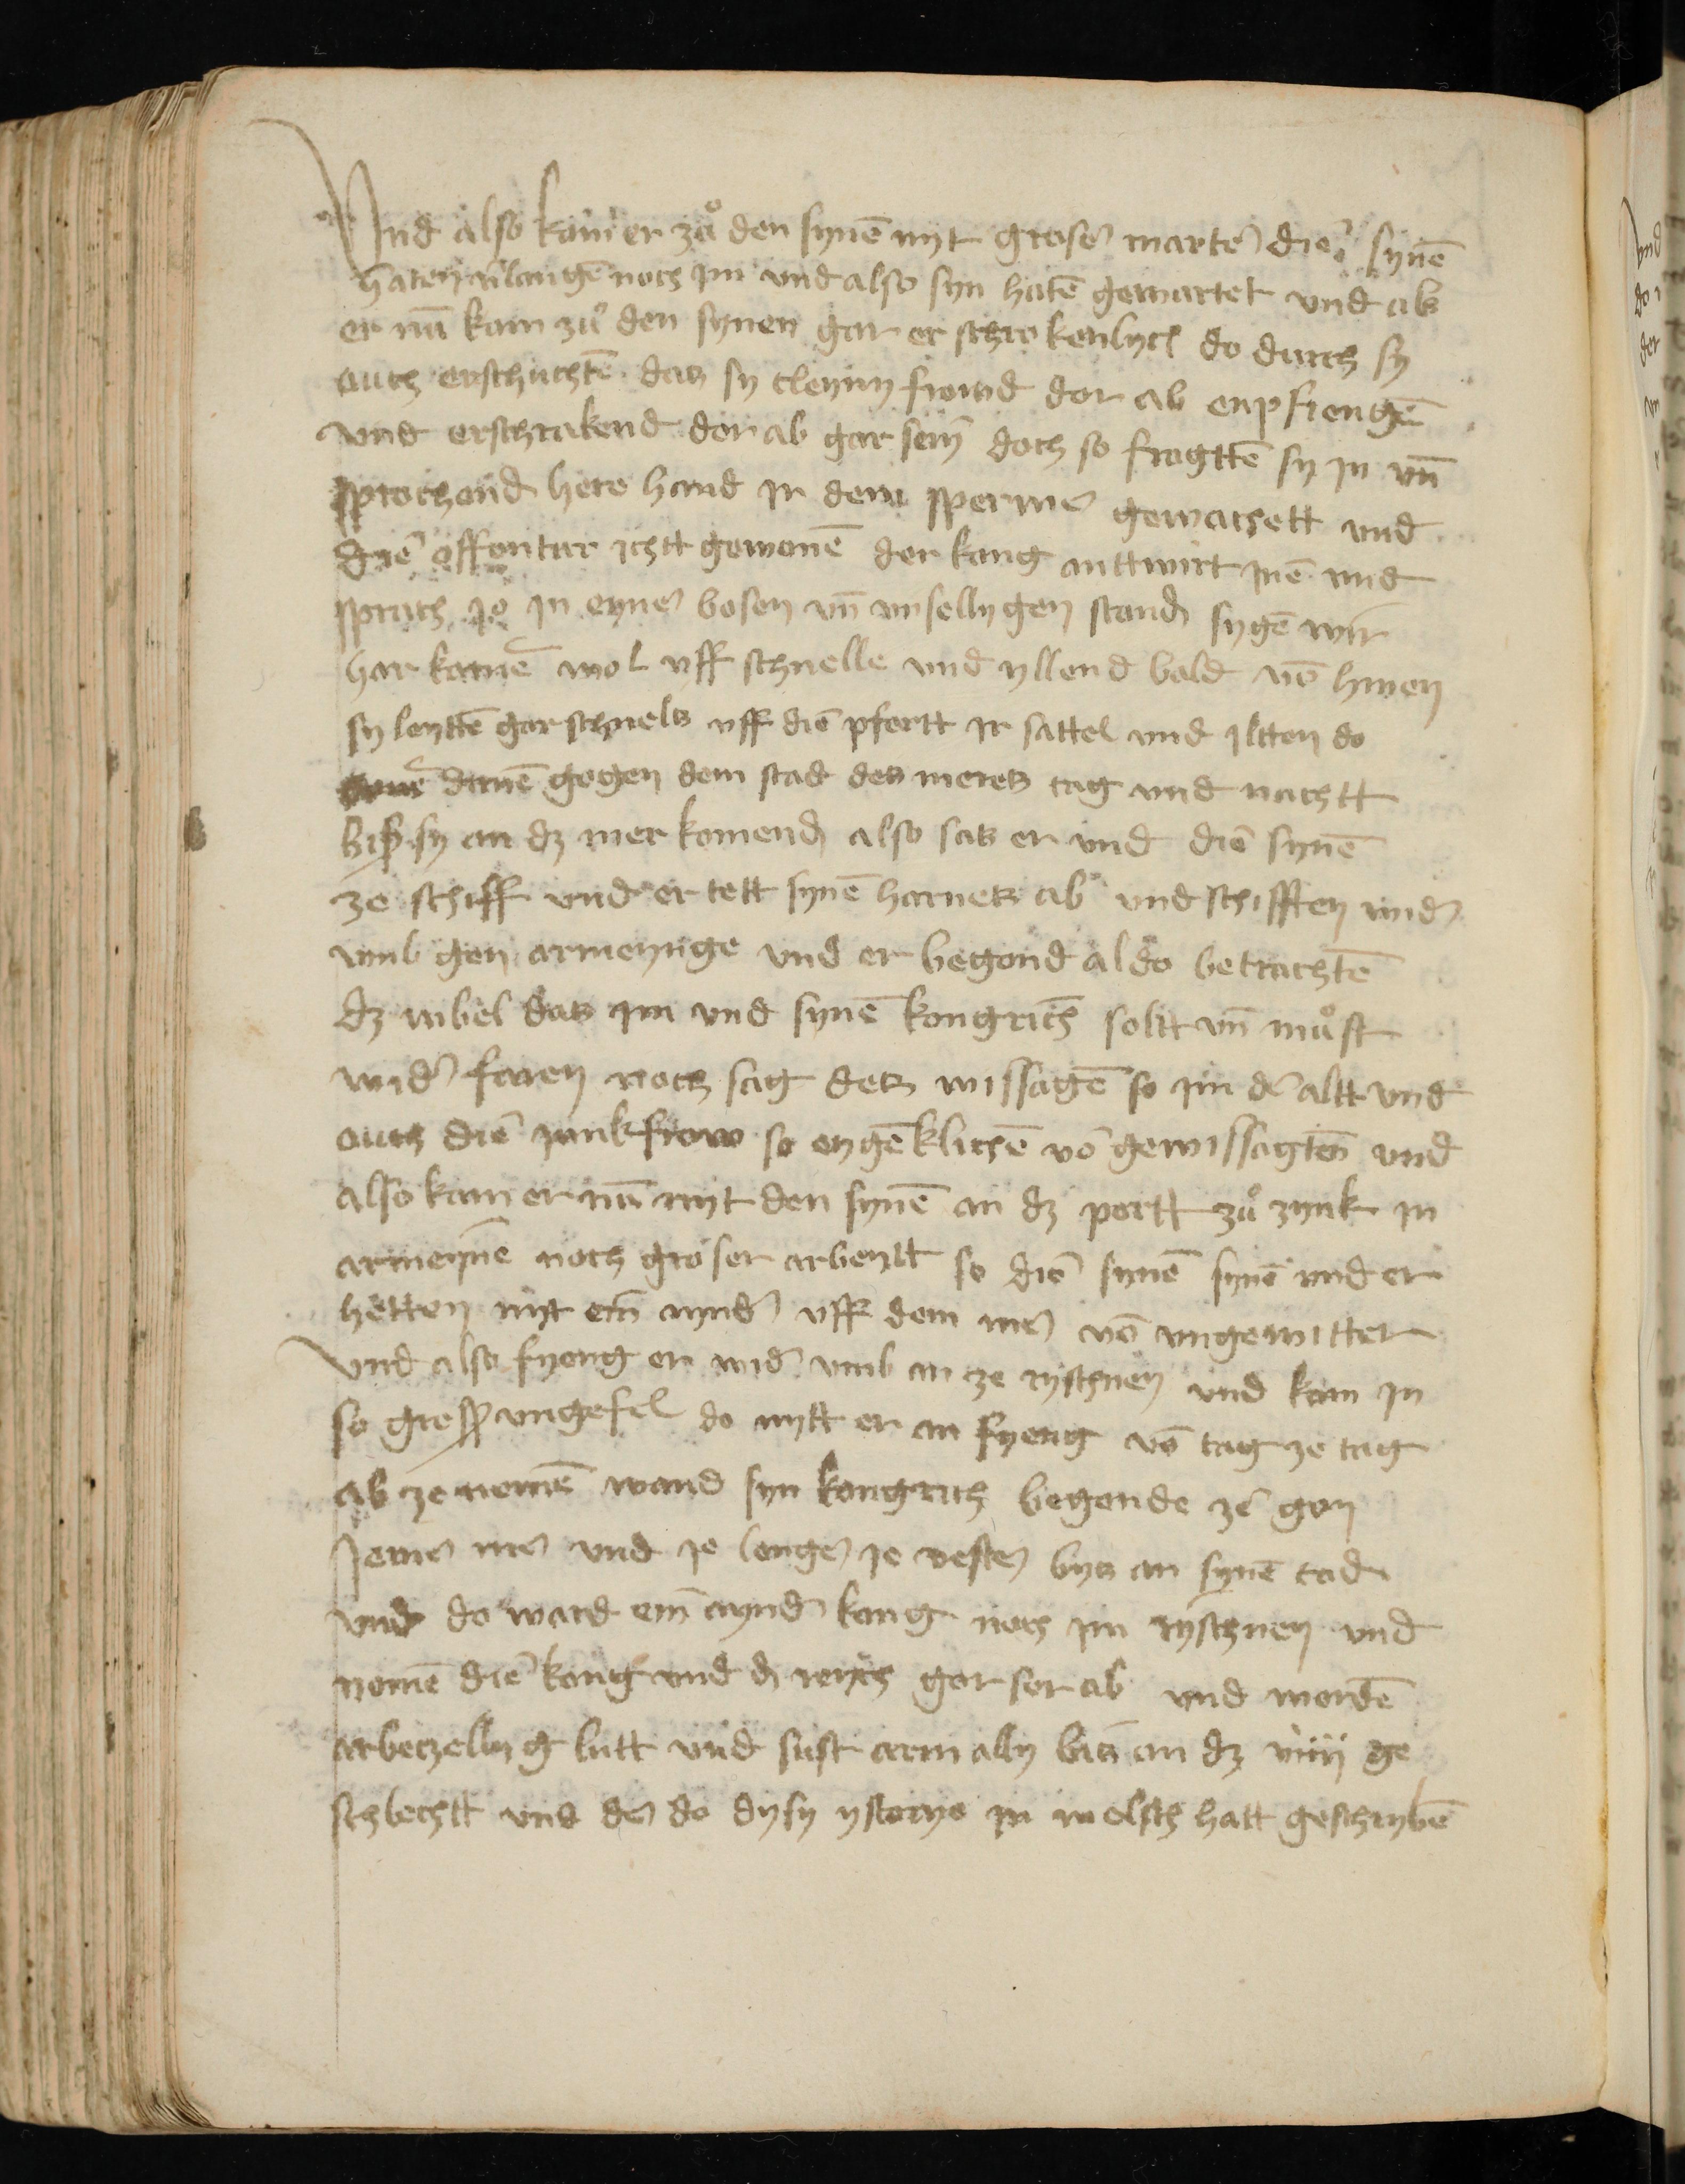 Vnd also kam er zuͦ den synē myt groser marter die synē
haten v̈langē noch jm vnd also syn hatē gewartet vnd als
er nū kam zuͦ den synen gar er schrokenlych do durch sy
ouch erschuchtē das sy cleyny froiwd dor ab enpfiengē
vnd erschrakend dor ab gar serͣ doch so frogttē sy jn vn̄
sprochend here hand ir dem sperwer gewachett vnd
die offentur ichtt gewonē der kong anttwirt jnē vnd
sprach jo jn eyner bosen vn̄ vnsellygen stand sygē wir
har komē wol vff schnelle vnd yllend bald vō hinen
sy leyttē gar schnels vff die pfertt ir sattel vnd jltten do
danē gegen dem stad des meres tag vnd nachtt
biß sy an dz mer komend also sas er vnd die synē
ze schiff vnd er tett synē harnes ab vnd schifften wider
vmb gen armenyge vnd er begond aldo betrachtē
dz v̈bel das jm vnd synē kongrich soltt vn̄ muͦst
wider faren noch sag des wissagē so jm der altt vnd
ouch die junkfrow so eygēklichē vō gewissagtē vnd
also kam er nū myt den synē an dz portt zuͦ zynk jn
armeyne noch groser arbeytt so die synē synē vnd er
hetten myt ein̄ aynder vff dem mer vō vngewitter
vnd also fyeng er wider vmb an ze ryschnen vnd kam jn
so groß vngefel do mytt er an fyeng vō tag ze tag
ab ze nemē wand syn kongrich begonde ze gon
jemer mer vnd je lenger je vester bys an synē tod
vnd do ward ein̄ aynder kong noch jm ryschnen vnd
nomē die kong vnd dz reych gar ser ab vnd wordē
arbeyzellyg lutt vnd sust arm ally bis an dz viiij ge
schlechtt vnd der do dysy ystorye jn welsch hatt geschrybē